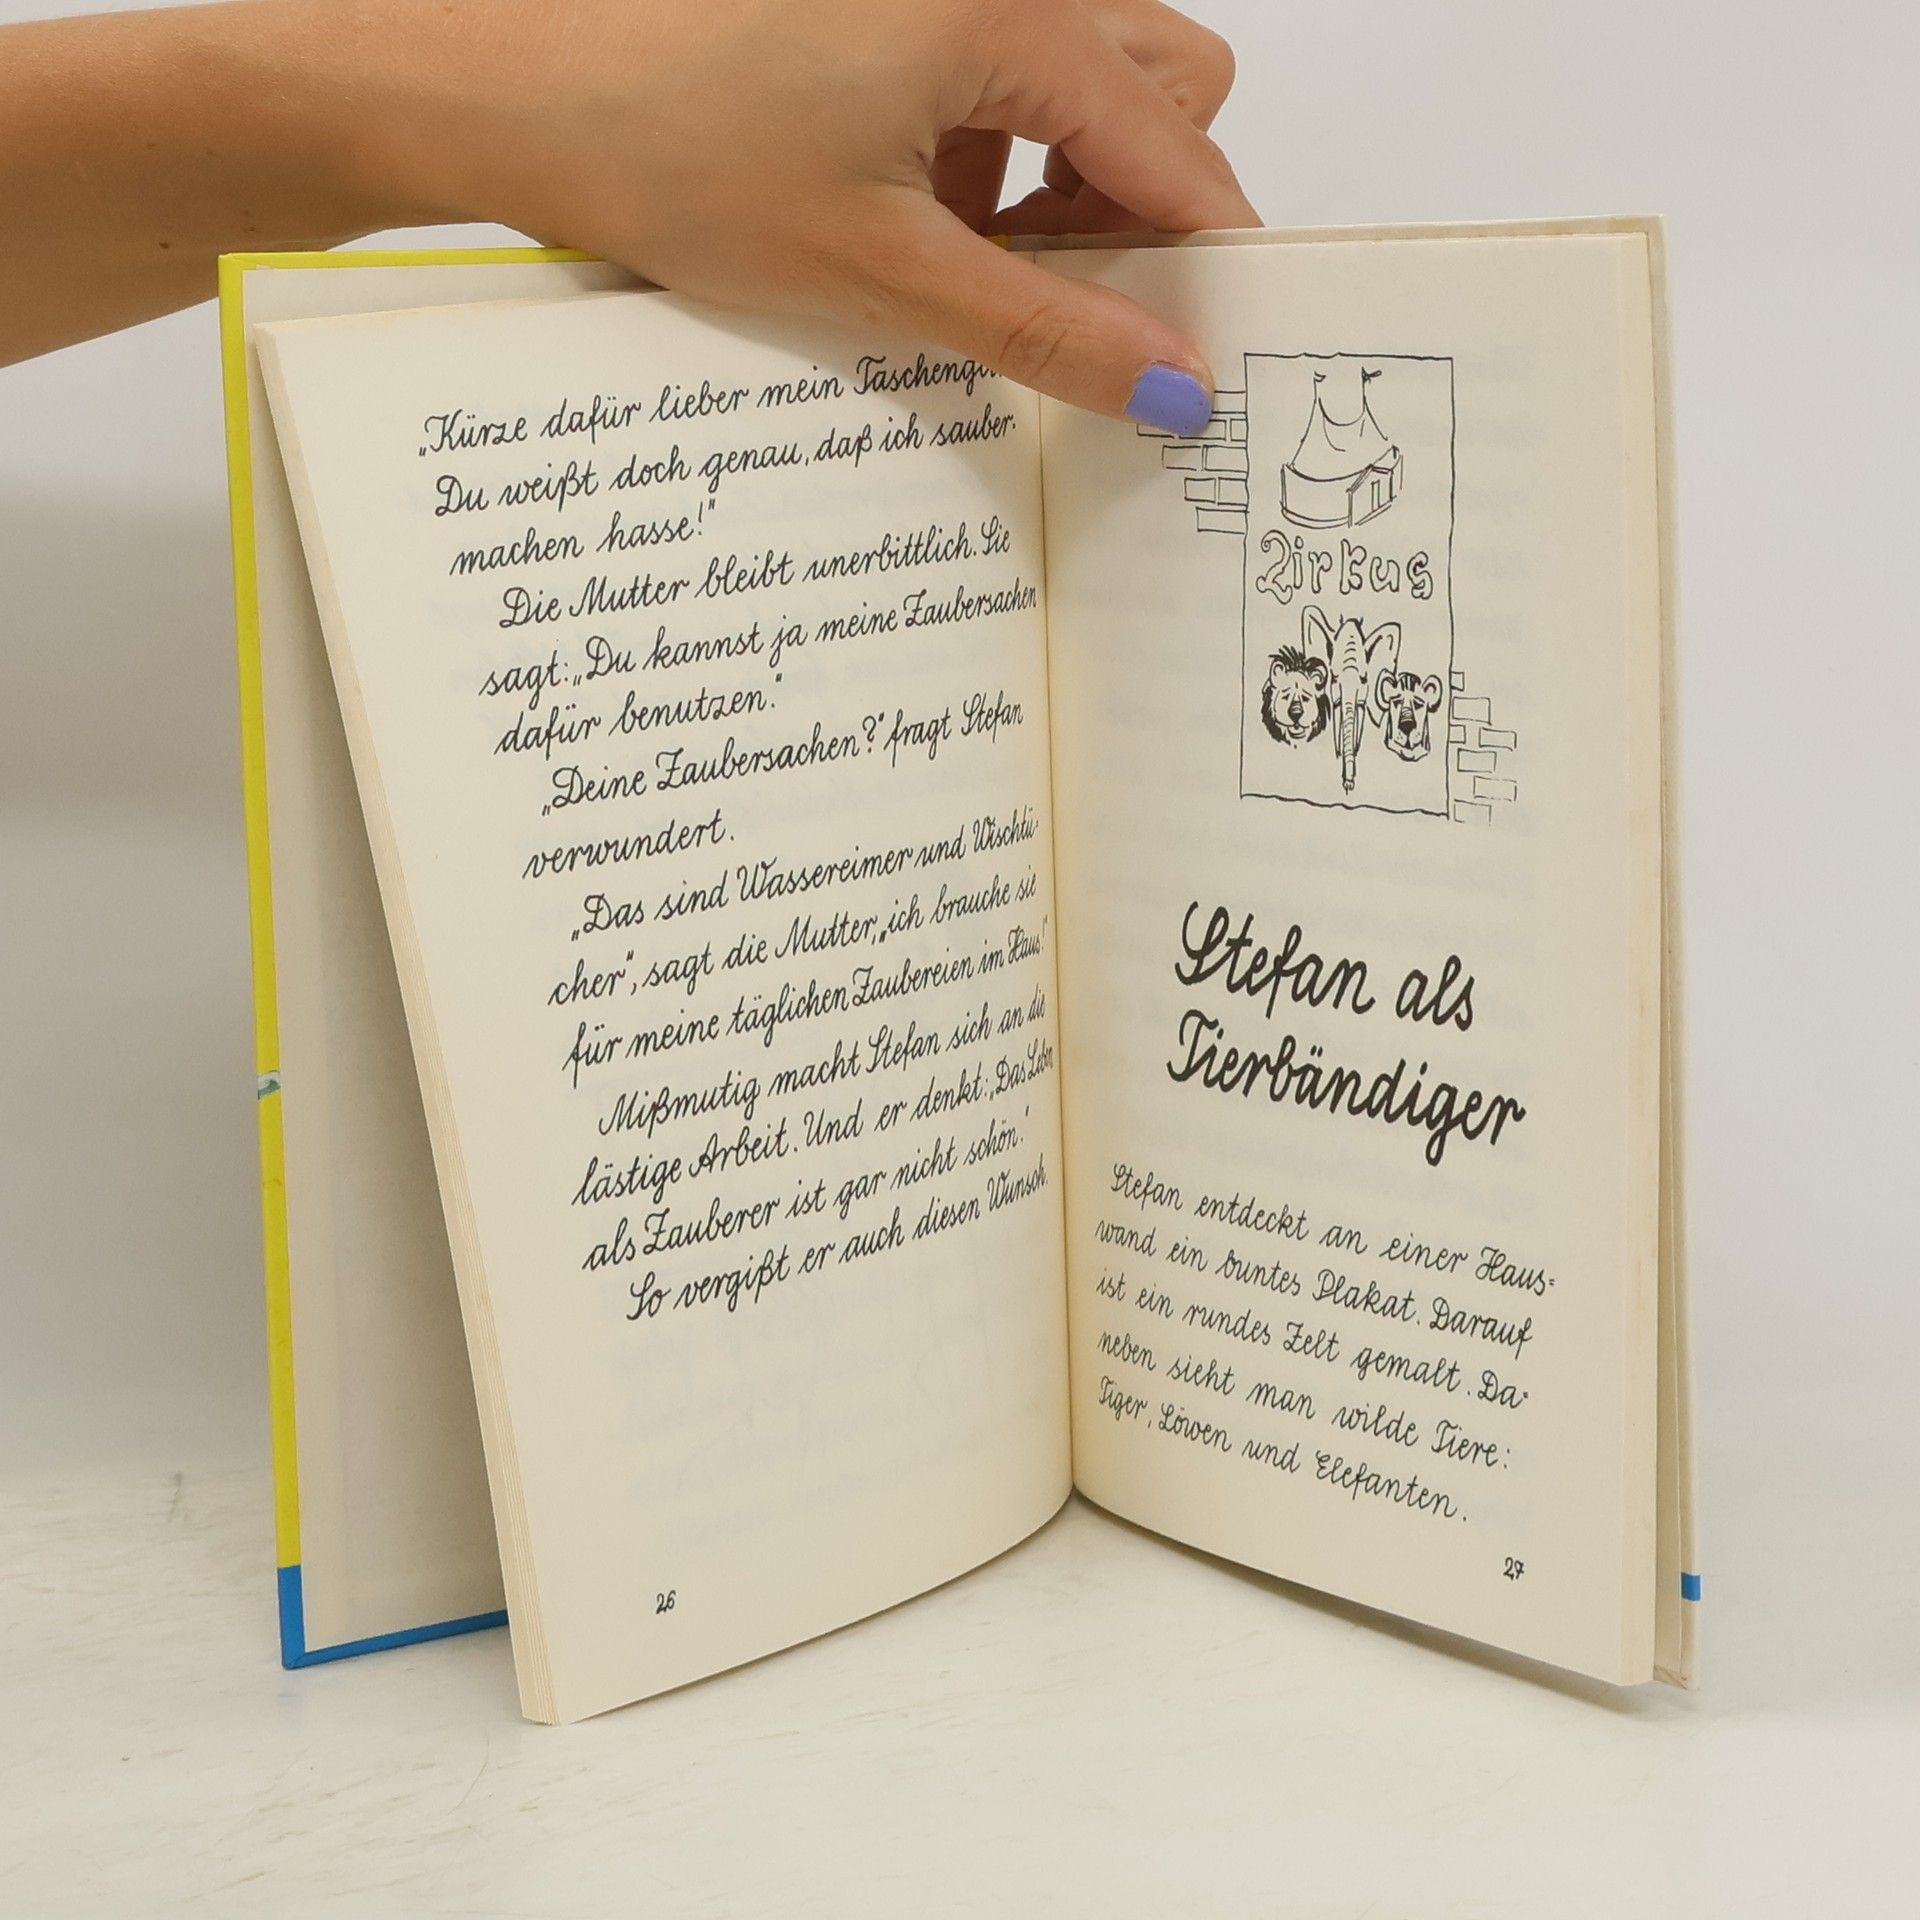 „Kürze dafür lieber mein
Du weißt doch genau, daß ich sauber-
machen hasse!“
Die Mutter bleibt unerbittlich. Sie
sagt: „Du kannst ja meine Zaubersachen
dafür benutzen.“
„Deine Zaubersachen?“ fragt Stefan
verwundert.
„Das sind Wassereimer und Wischtü-
cher“, sagt die Mutter, „ich brauche sie
für meine täglichen Zaubereien im Haus!“
Mißmutig macht Stefan sich an die
lästige Arbeit. Und er denkt: „Das Leben
als Zauberer ist gar nicht schön.“
So vergißt er auch diesen Wunsch.
26
Zirkus
Stefan als
Tierbändiger
Stefan entdeckt an einer Haus-
wand ein buntes Plakat. Darauf
ist ein rundes Zelt gemalt. Da-
neben sieht man wilde Tiere:
Tiger, Löwen und Elefanten.
27